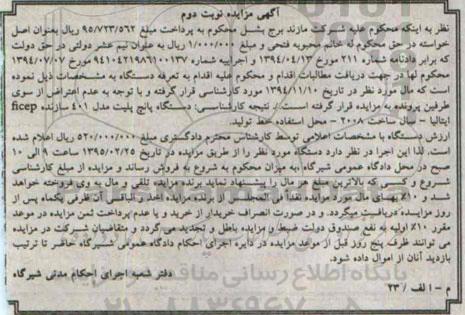 آگهی مزایده نوبت دوم
نظر به اینکه محکوم علیه شرکت مازند برج بشل محکوم به پرداخت مبلغ ۹۵/۷۲۳/۵۶۲ ریال بعنوان اصل
خواسته در حق محکوم له خانم محبوبه فتحی و مبلغ ۱/۰۰۰/۰۰۰ ریال به عنوان نیم عشر دولتی در حق دولت
که برابر دادنامه شماره ۲۱۱ مورخ ۱۳۹۴/۰۴/۱۳ و اجراییه شماره ۹۴۱۰۴۲۱۹۸۶۱۰۰۱۳۷ مورخ ۱۳۹۴/۰۷/۰۷
محکوم لها در جهت دریافت مطالبات اقدام و محکوم علیه اقدام به تعرفه دستگاه به مشخصات ذیل نموده
است که مال مورد نظر در تاریخ ۱۳۹۴/۱۱/۱۰ مورد کارشناسی قرار گرفته و با توجه به عدم اعتراض از سوی
طرفین پرونده به مزایده قرار گرفته است. نتیجه کارشناسی: دستگاه پانچ پلیت مدل ۴۰۱ سازنده ficep
ایتالیا - سال ساخت ۲۰۰۸ - محل استفاده خط تولید.
ارزش دستگاه با مشخصات اعلامی توسط کارشناس محترم دادگستری مبلغ ۵۲۰/۰۰۰/۰۰۰ ریال اعلام شده
است. لذا این اجرا در نظر دارد دستگاه مورد نظر را از طریق مزایده در تاریخ ۱۳۹۵/۰۲/۲۵ ساعت ۹ الی ۱۰
صبح در محل دادگاه عمومی شیرگاه ،به میزان محکوم به شروع به فروش رساند و مزایده از مبلغ کارشناسی
شروع و کسی که بالاترین مبلغ هر مال را پیشنهاد نماید برنده مزایده تلقی و مال به وی فروخته خواهد
شد و ۱۰٪ بهای مال مورد مزایده نقداً فی المجلس از برنده مزایده اخذ و الباقی آن ظرفی یکماه پس از
روز مزایده دریافت میگردد. و در صورت انصراف خریدار از خرید و یا عدم پرداخت ثمن مزایده در موعد
مقرر ۱۰٪ اولیه به نفع صندوق دولت ضبط و مزایده باطل و تجدید می گردد و متقاضیان شرکت در مزایده
می توانند ظرف پنج روز قبل از موعد مزایده در دایره اجرای احکام دادگاه عمومی شیرگاه حاضر تا ترتیب
بازدید آنان از اموال داده شود.
دفتر شعبه اجرای احکام مدنی شیرگاه
م - الف / ۲۳